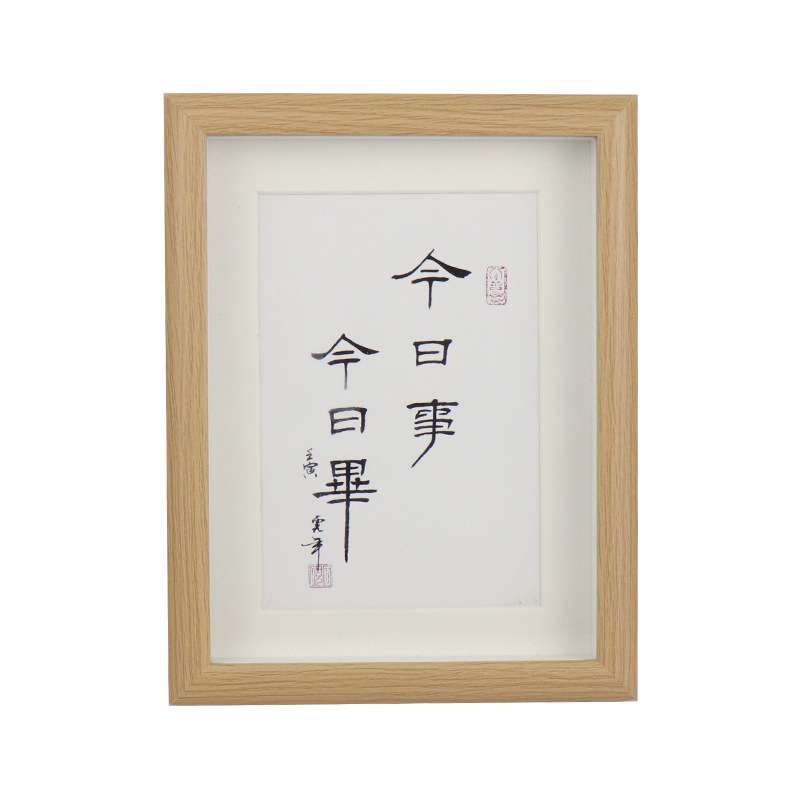 今日事
今日畢
壬寅